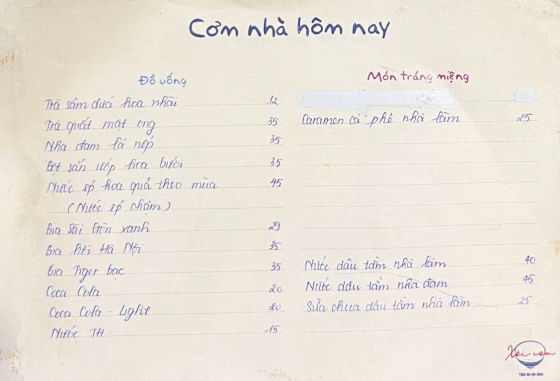 Cơm nhà hôm nay
Đồ uống
Trà sâm dứa hoa nhài 12
Trà quất mật ong 35
Nha đam lá nếp 35
Bột sắn ướp hoa bưởi 35
Nước ép hoa quả theo mùa 45
(Nước ép chậm)
Bia Sài Gòn xanh 29
Bia hơi Hà Nội 35
Bia Tiger bạc 35
Coca Cola 20
Coca Cola - Light 20
Nước TH 15
Món tráng miệng
Caramen cà phê nhà làm 25
Nước dâu tằm nhà làm 40
Nước dâu tằm nha đam 45
Sữa chua dâu tằm nhà làm 25